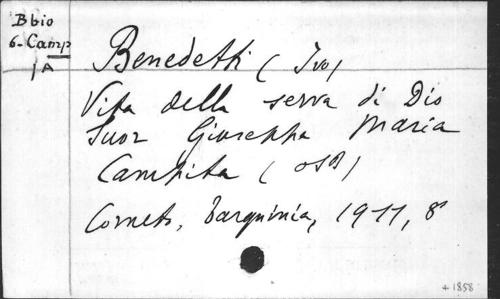 B bio
6-Camp
/A
Benedetti (Ivo)
Vita della serva di Dio
Suor Giuseppa Maria
Campita (OSB)
Corneto, Tarquinia, 1911, 8°
+ 1858